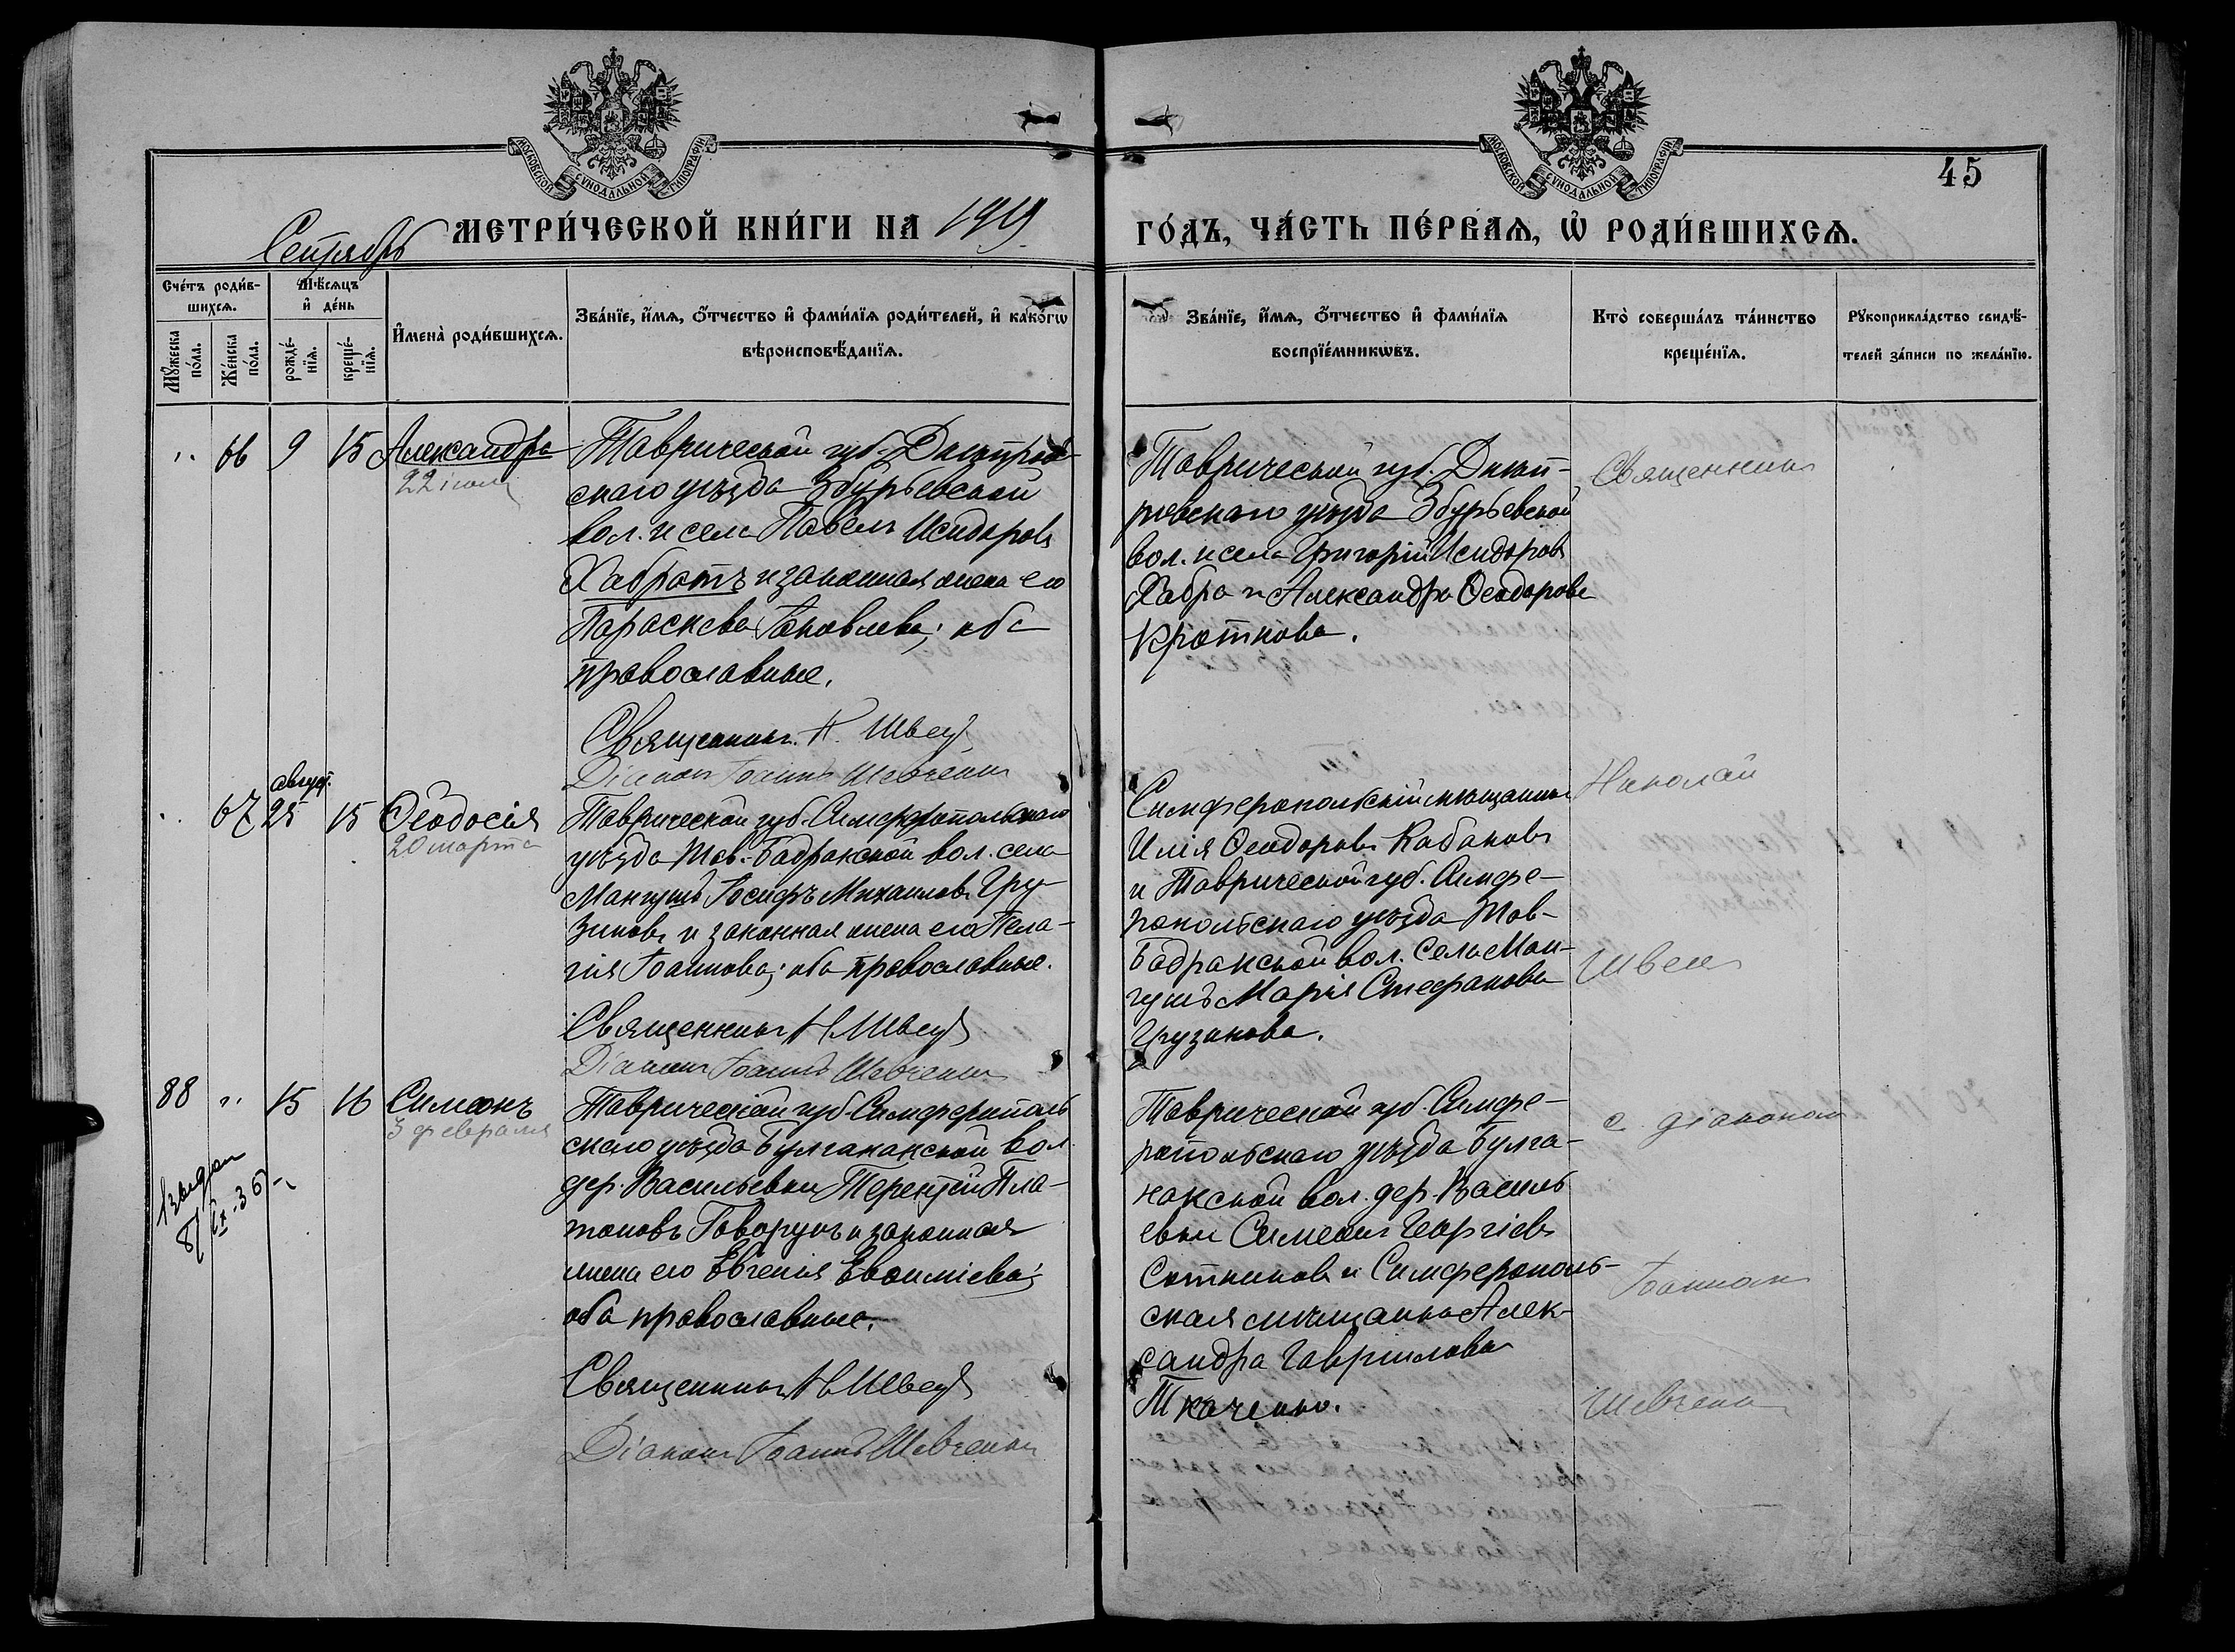 МОСКОВСКОЙ СѴНОДАЛЬНОЙ ТИПОГРАФІИ
МОСКОВСКОЙ СѴНОДАЛЬНОЙ ТИПОГРАФІИ
45
Сентябрь
МЕТРИ́ЧЕСКОЙ КНИ́ГИ НА 1919
ГО́ДЪ, ЧА́СТЬ ПЕ́РВАѦ, Ѡ҆ РОДИ́ВШИХСѦ.
Сче́тъ роди́в-
шихсѧ.
Мꙋ́жеска по́ла.
Же́нска по́ла.
Мѣ́сѧцъ
и҆ де́нь
рожде́-нїѧ.
креще́-нїѧ.
И҆мена̀ роди́вшихсѧ.
Зва́нїе, и҆́мѧ, ѻ҆́тчество и҆ фами́лїѧ роди́телей, и҆ како́гѡ
вѣроисповѣ́данїѧ.
Зва́нїе, и҆́мѧ, ѻ҆́тчество и҆ фами́лїѧ
воспрїе́мникѡвъ.
Кто̀ соверша́лъ та́инство
креще́нїѧ.
Рꙋкоприкла́дство свидѣ́-
телей за́писи по жела́нїю.
„ 66 9 15 Александра
22
Таврической губ. Днѣпров-
скаго уѣзда Збурьевской
вол. и села Павелъ Исидоровъ
Хабротъ и законная жена его
Параскева Іаковлева; оба
православные.
Священникъ Н. Швецъ
Діаконъ Іоаннъ Шевченко
Таврической губ. Днѣп-
ровскаго уѣзда Збурьевской
вол. и села Григорій Исидоровъ
Хабра и Александра Ѳеодорова
Кроткова.
Священникъ
„ 67 август. 25 15 Ѳеодосія
20 марта
Таврической губ. Симферопольскаго
уѣзда Тав.-Бадракской вол. села
Мангушъ Іосифъ Михаиловъ Гру-
зиновъ и законная жена его Пела-
гія Іоаннова; оба православные.
Священникъ Н Швецъ
Діаконъ Іоаннъ Шевченко
Симферопольскій мѣщанинъ
Илія Ѳеодоровъ Кабаковъ
и Таврической губ. Симфе-
ропольскаго уѣзда Тав-
Бадракской вол. села Ман-
гушъ Марія Стефанова
Грузинова.
Николай
Швец
88 „ 15 16 Симеонъ
3 февраля
Выдан
8/IX-36
Таврической губ. Симферополь
скаго уѣзда Булганакской вол.
дер. Васильевки Терентій Пла-
тоновъ Говорунъ и законная
жена его Евгенія Евѳиміева;
оба православные.
Священникъ Н Швецъ
Діаконъ Іоаннъ Шевченко
Таврической губ. Симфе-
ропольскаго уѣзда Булга-
накской вол. дер. Василь
евки Симеонъ Георгіевъ
Сотниковъ и Симферополь-
ская мѣщанка Алек-
сандра Гавриилова
Ткаченко.
с діакономъ
Іоанном
Шевченко